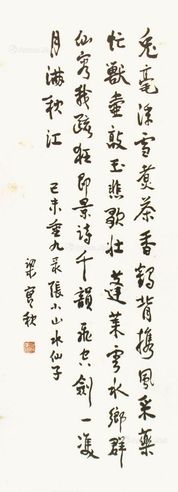 兔毫浮雪煮茶香鶴背攜風采藥
忙獸壺敲玉悲歌壯蓬萊雲水鄉群
仙容我疏狂即景詩千韻飛空劍一雙
月滿秋江 己未重九录張小山水仙子
梁實秋